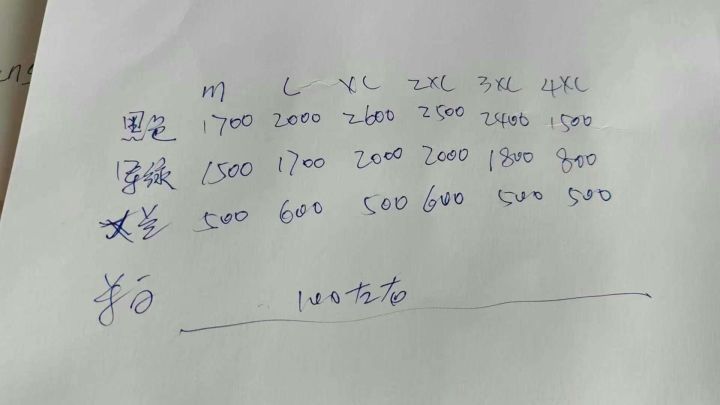 M L XL 2XL 3XL 4XL
黑色 1700 2000 2600 2500 2400 1500
军绿 1500 1700 2000 2000 1800 800
兰 500 600 500 600 500 500
100左右